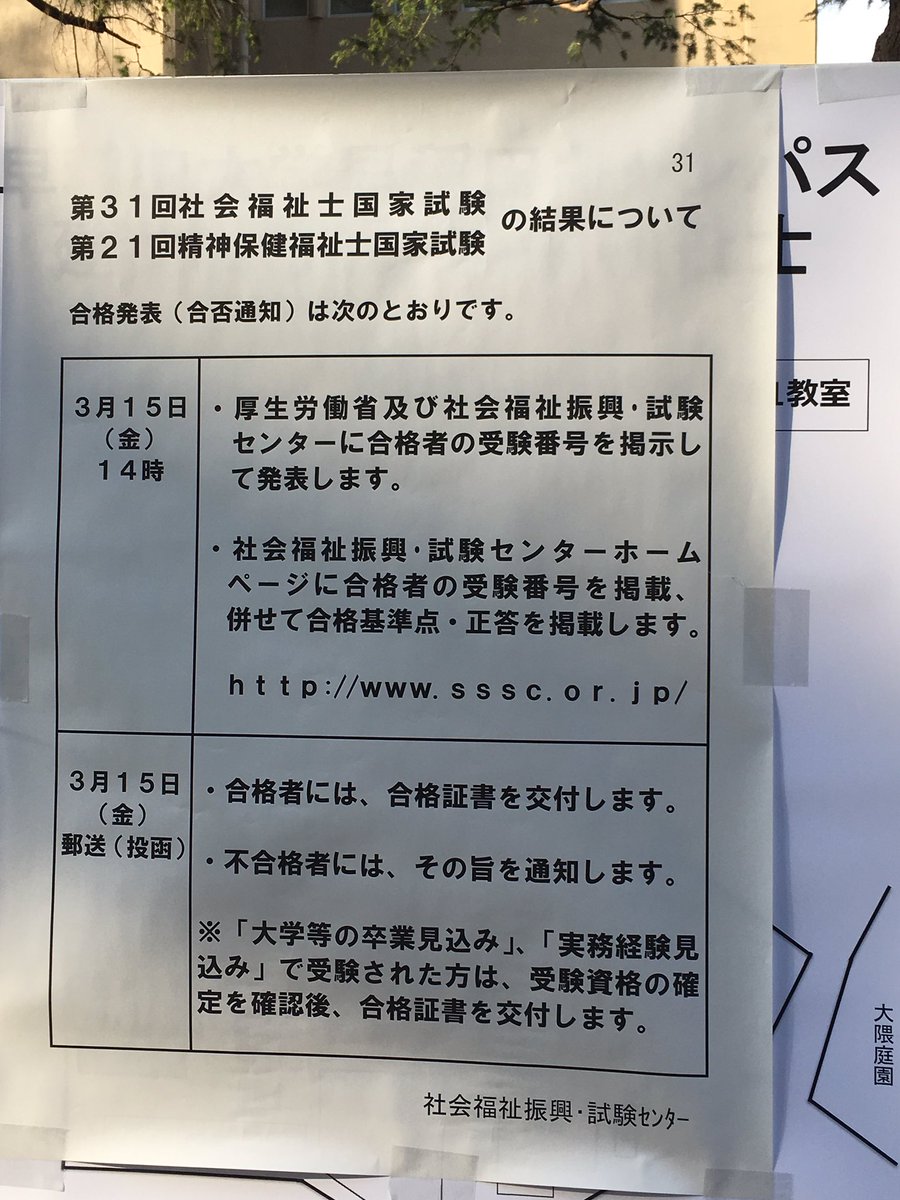 31
第３１回社会福祉士国家試験
第２１回精神保健福祉士国家試験
の結果について
合格発表（合否通知）は次のとおりです。
３月１５日
（金）
１４時
・厚生労働省及び社会福祉振興・試験
センターに合格者の受験番号を掲示し
て発表します。
・社会福祉振興・試験センターホーム
ページに合格者の受験番号を掲載、
併せて合格基準点・正答を掲載します。
ｈｔｔｐ：／／ｗｗｗ．ｓｓｓｃ．ｏｒ．ｊｐ／
３月１５日
（金）
郵送（投函）
・合格者には、合格証書を交付します。
・不合格者には、その旨を通知します。
※「大学等の卒業見込み」、「実務経験見
込み」で受験された方は、受験資格の確
定を確認後、合格証書を交付します。
社会福祉振興・試験ｾﾝﾀｰ
パス
士
1教室
大隈庭園